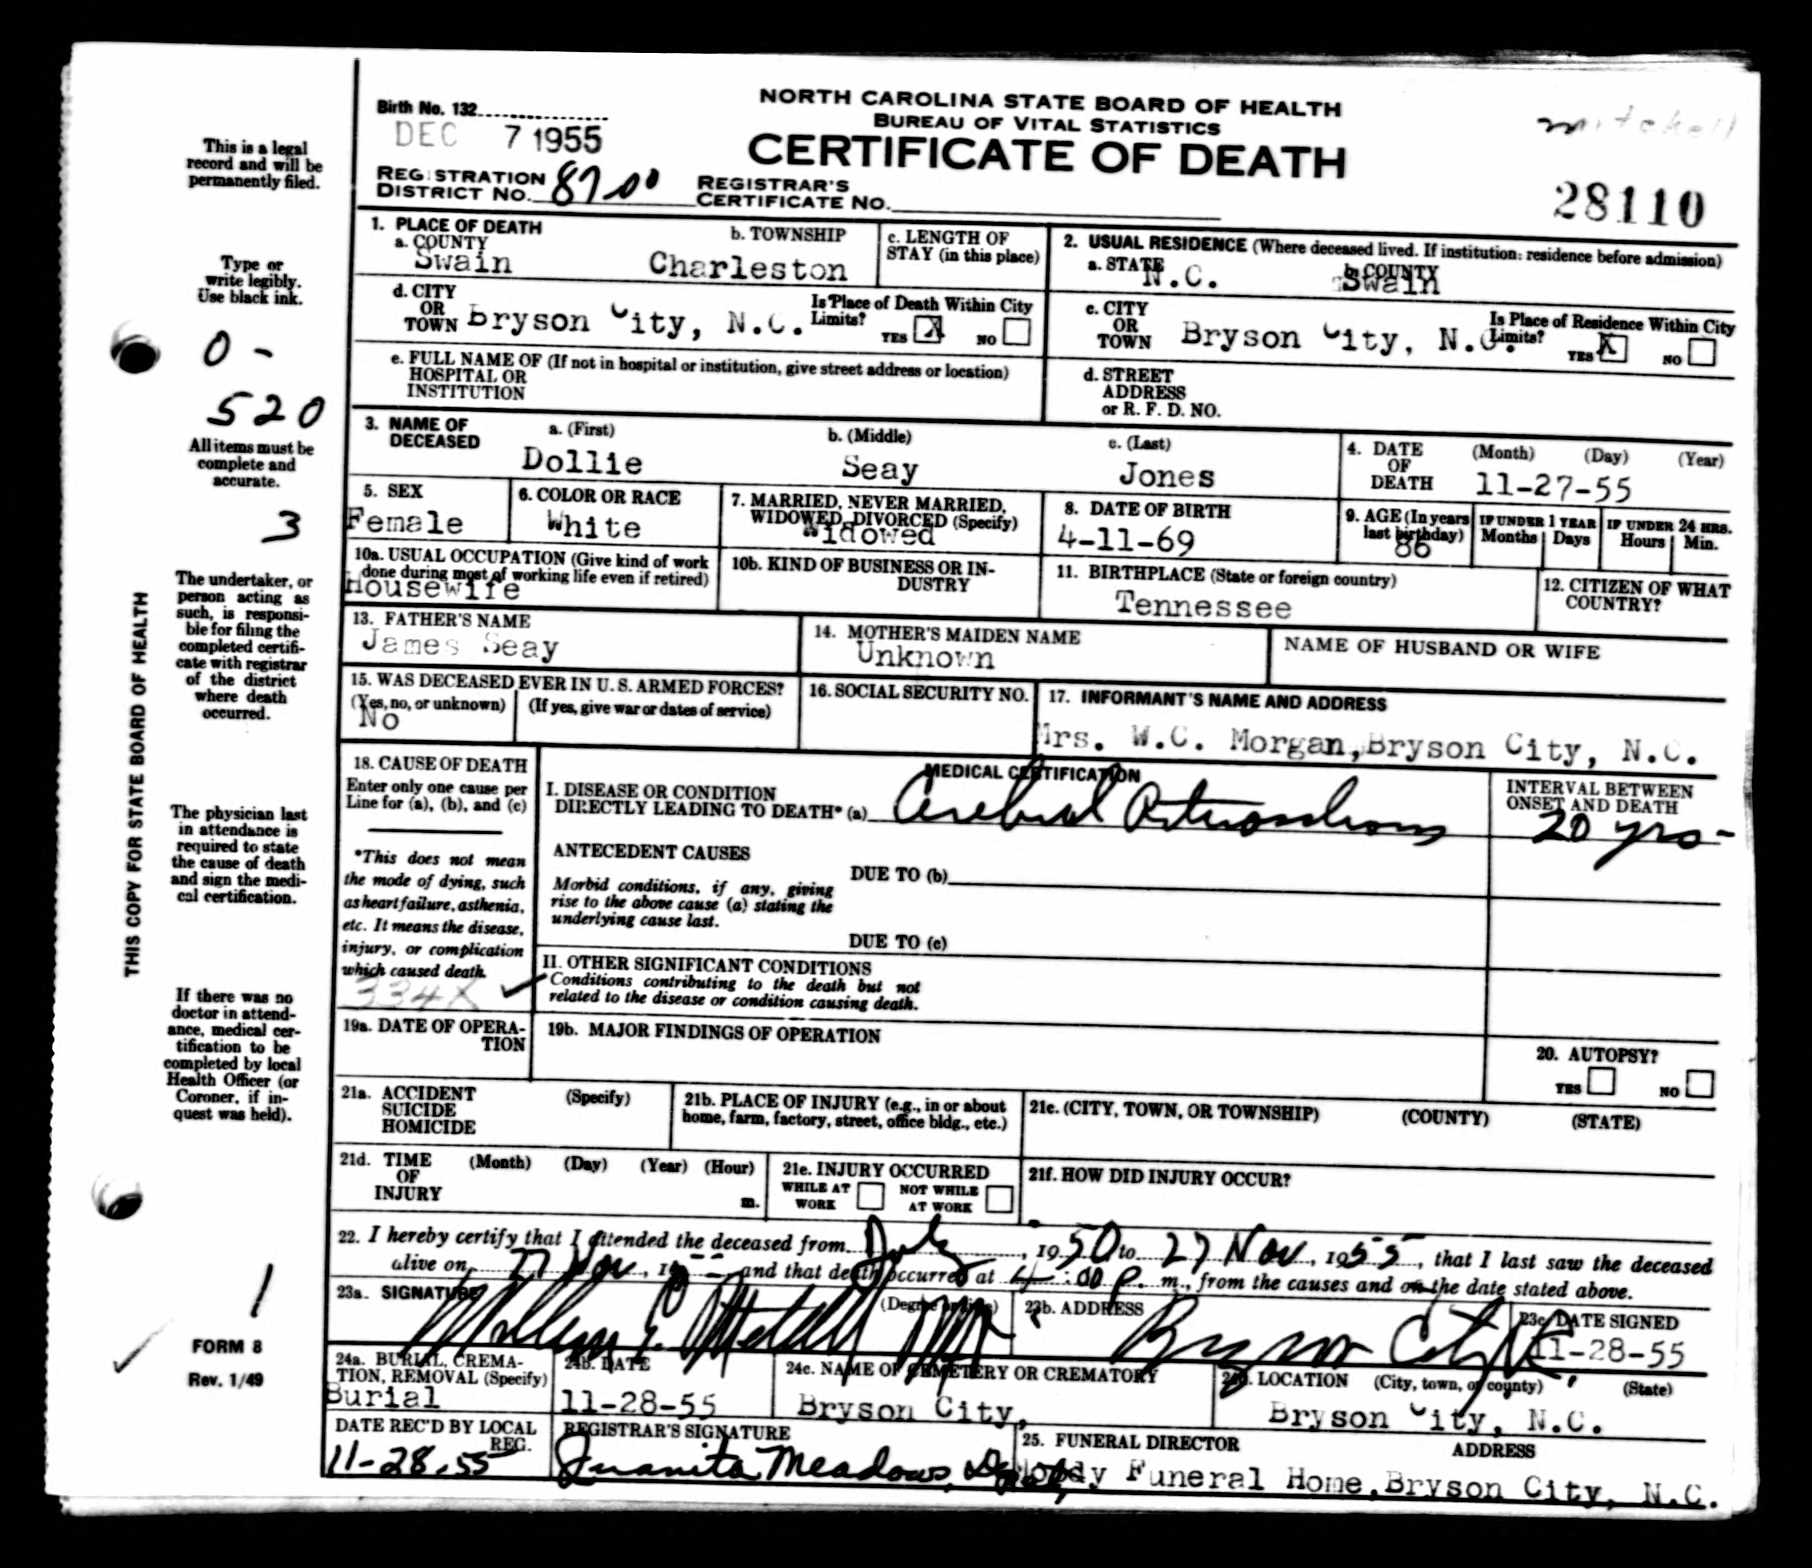 THIS COPY FOR STATE BOARD OF HEALTH
This is a legal
record and will be
permanently filed.
Type or
write legibly.
Use black ink.
0 -
520
All items must be
complete and
accurate.
3
The undertaker, or
person acting as
such, is responsi-
ble for filing the
completed certifi-
cate with registrar
of the district
where death
occurred.
The physician last
in attendance is
required to state
the cause of death
and sign the medi-
cal certification.
If there was no
doctor in attend-
ance, medical cer-
tification to be
completed by local
Health Officer (or
Coroner, if in-
quest was held).
1
FORM 8
Rev. 1/49
Birth No. 132
DEC 7 1955
NORTH CAROLINA STATE BOARD OF HEALTH
BUREAU OF VITAL STATISTICS
CERTIFICATE OF DEATH
mitchell
REGISTRATION DISTRICT NO. 8700
REGISTRAR'S CERTIFICATE NO.
28110
1. PLACE OF DEATH
a. COUNTY Swain
b. TOWNSHIP Charleston
c. LENGTH OF STAY (in this place)
2. USUAL RESIDENCE (Where deceased lived. If institution: residence before admission)
a. STATE N.C.
b. COUNTY Swain
d. CITY OR TOWN Bryson City, N.C.
Is Place of Death Within City Limits? YES X NO
c. CITY OR TOWN Bryson City, N.C.
Is Place of Residence Within City Limits? YES X NO
e. FULL NAME OF (If not in hospital or institution, give street address or location)
HOSPITAL OR
INSTITUTION
d. STREET
ADDRESS
or R. F. D. NO.
3. NAME OF DECEASED
a. (First) Dollie
b. (Middle) Seay
c. (Last) Jones
4. DATE OF DEATH (Month) (Day) (Year)
11-27-55
5. SEX
Female
6. COLOR OR RACE
White
7. MARRIED, NEVER MARRIED,
WIDOWED, DIVORCED (Specify)
Widowed
8. DATE OF BIRTH
4-11-69
9. AGE (In years last birthday)
86
IF UNDER 1 YEAR
Months Days
IF UNDER 24 HRS.
Hours Min.
10a. USUAL OCCUPATION (Give kind of work
done during most of working life even if retired)
Housewife
10b. KIND OF BUSINESS OR IN-
DUSTRY
11. BIRTHPLACE (State or foreign country)
Tennessee
12. CITIZEN OF WHAT
COUNTRY?
13. FATHER'S NAME
James Seay
14. MOTHER'S MAIDEN NAME
Unknown
NAME OF HUSBAND OR WIFE
15. WAS DECEASED EVER IN U.S. ARMED FORCES?
(Yes, no, or unknown) (If yes, give war or dates of service)
No
16. SOCIAL SECURITY NO.
17. INFORMANT'S NAME AND ADDRESS
Mrs. W.C. Morgan, Bryson City, N.C.
18. CAUSE OF DEATH
Enter only one cause per
Line for (a), (b), and (c)
*This does not mean
the mode of dying, such
as heart failure, asthenia,
etc. It means the disease,
injury, or complication
which caused death.
334X
MEDICAL CERTIFICATION
I. DISEASE OR CONDITION
DIRECTLY LEADING TO DEATH* (a) Cerebral Arteriosclerosis
INTERVAL BETWEEN
ONSET AND DEATH
20 yrs-
ANTECEDENT CAUSES
Morbid conditions, if any, giving
rise to the above cause (a) stating the
underlying cause last.
DUE TO (b)
DUE TO (c)
II. OTHER SIGNIFICANT CONDITIONS
Conditions contributing to the death but not
related to the disease or condition causing death.
19a. DATE OF OPERA-
TION
19b. MAJOR FINDINGS OF OPERATION
20. AUTOPSY?
YES NO
21a. ACCIDENT (Specify)
SUICIDE
HOMICIDE
21b. PLACE OF INJURY (e.g., in or about
home, farm, factory, street, office bldg., etc.)
21c. (CITY, TOWN, OR TOWNSHIP) (COUNTY) (STATE)
21d. TIME (Month) (Day) (Year) (Hour)
OF
INJURY m.
21e. INJURY OCCURRED
WHILE AT WORK NOT WHILE AT WORK
21f. HOW DID INJURY OCCUR?
22. I hereby certify that I attended the deceased from July, 1950 to 27 Nov, 1955, that I last saw the deceased
alive on 27 Nov, 19 and that death occurred at 4:00 P. m., from the causes and on the date stated above.
23a. SIGNATURE (Degree or title)
Mitchell MD
23b. ADDRESS
Bryson City NC.
23c. DATE SIGNED
11-28-55
24a. BURIAL, CREMA-
TION, REMOVAL (Specify)
Burial
24b. DATE
11-28-55
24c. NAME OF CEMETERY OR CREMATORY
Bryson City,
24d. LOCATION (City, town, or county) (State)
Bryson City, N.C.
DATE REC'D BY LOCAL
REG.
11-28-55
REGISTRAR'S SIGNATURE
Juanita Meadows,
25. FUNERAL DIRECTOR ADDRESS
Moody Funeral Home, Bryson City, N.C.